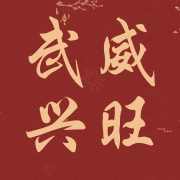 武威
兴旺